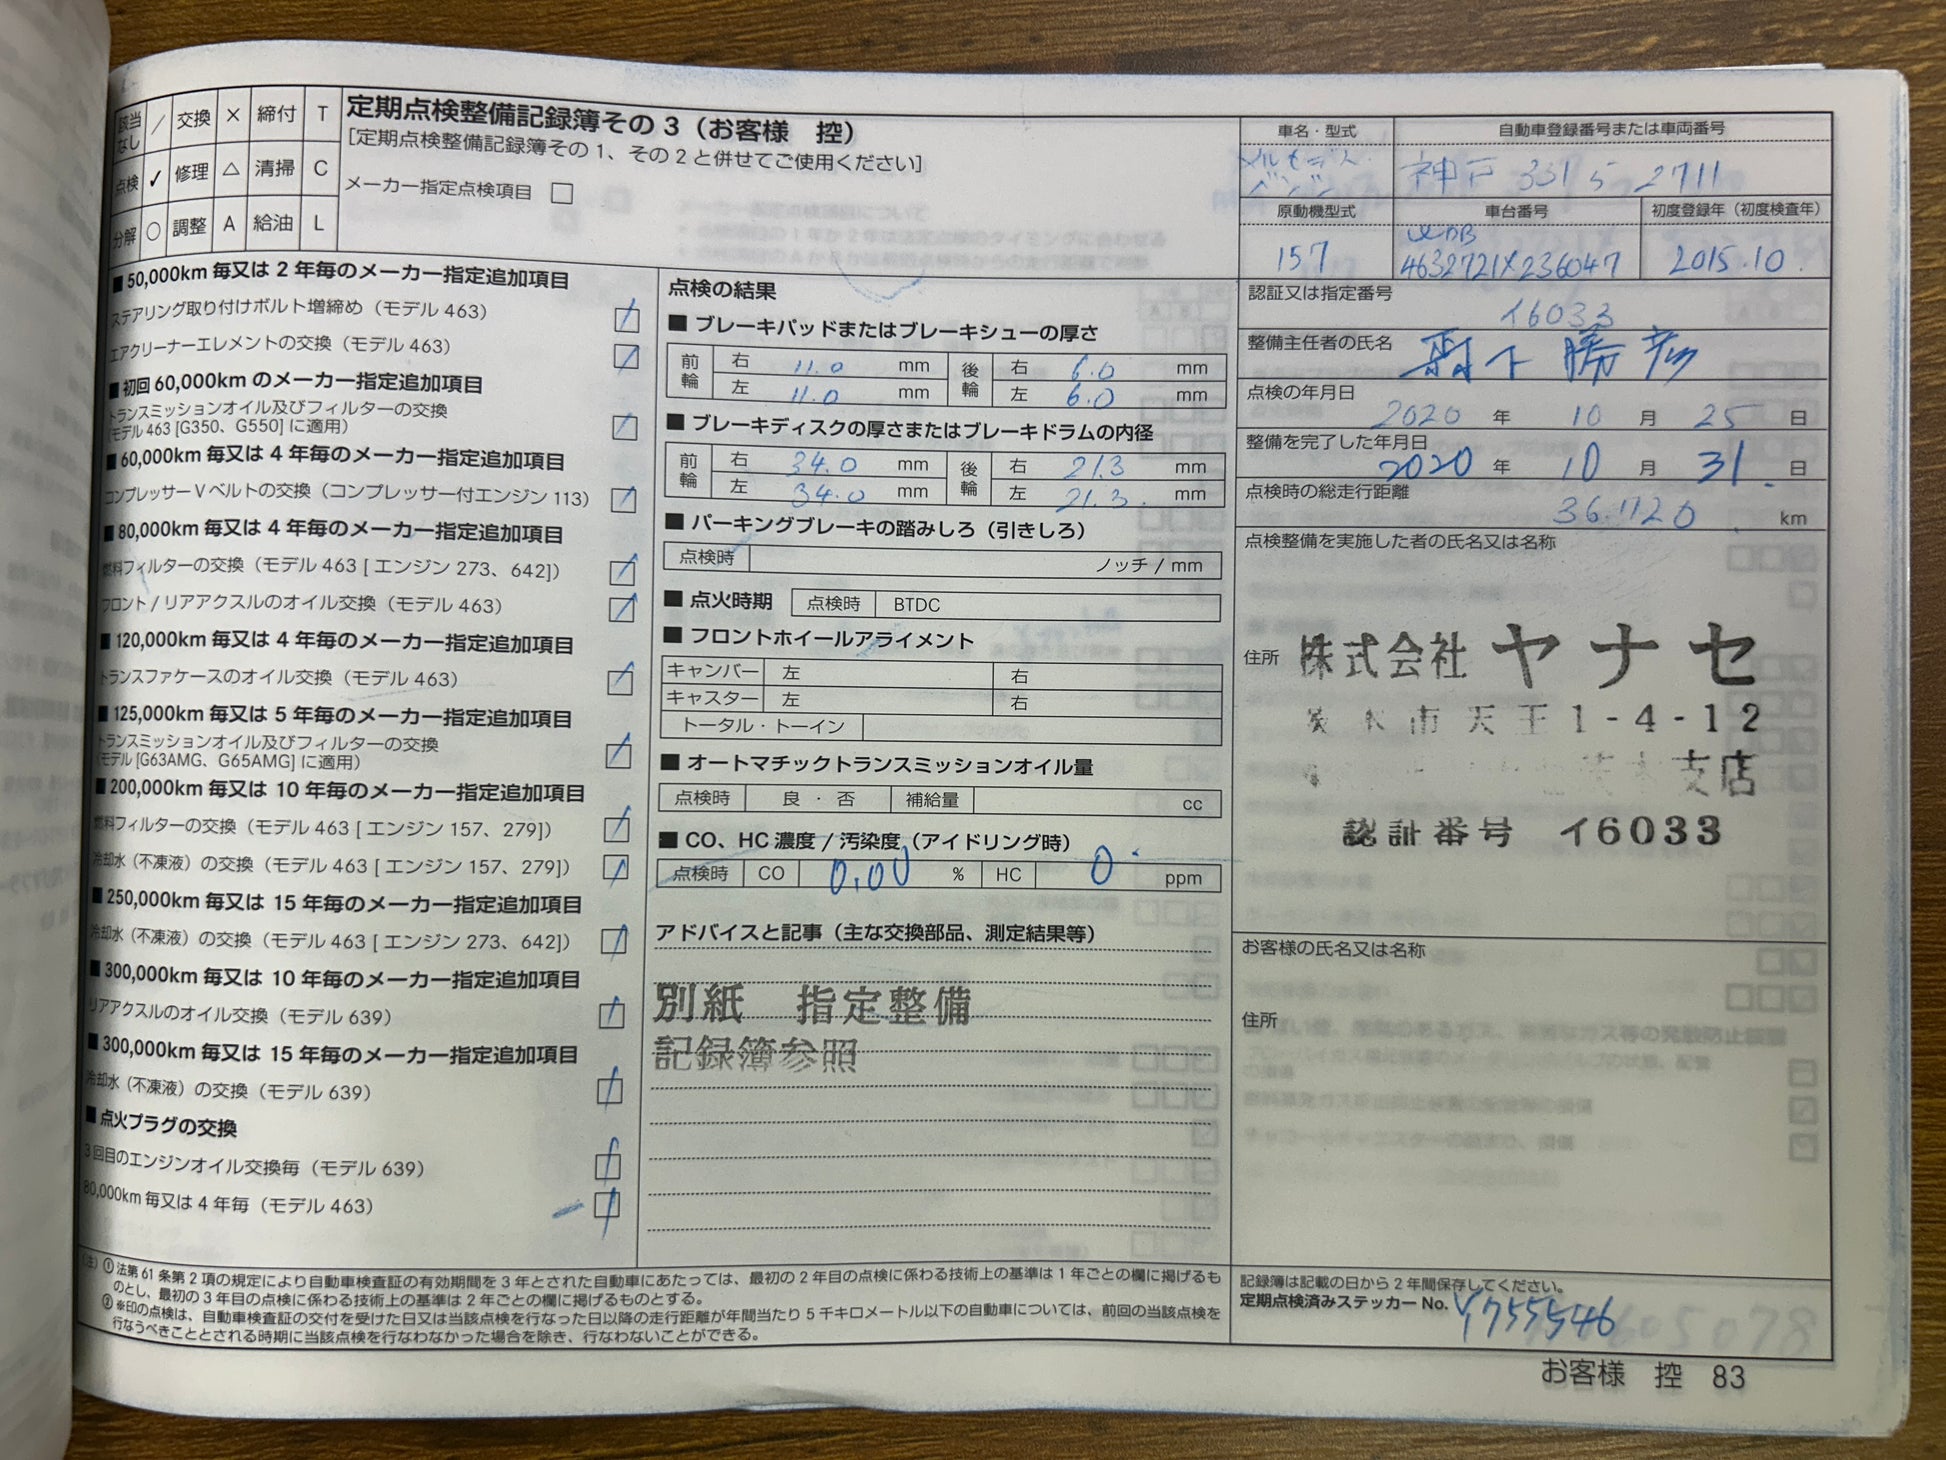 該当なし ／ 交換 × 締付 T
点検 ✓ 修理 △ 清掃 C
分解 ○ 調整 A 給油 L
定期点検整備記録簿その3（お客様　控）
［定期点検整備記録簿その1、その2と併せてご使用ください］
メーカー指定点検項目 □
■ 50,000km 毎又は 2 年毎のメーカー指定追加項目
ステアリング取り付けボルト増締め（モデル 463）
エアクリーナーエレメントの交換（モデル 463）
■ 初回 60,000km のメーカー指定追加項目
トランスミッションオイル及びフィルターの交換
（モデル 463 [G350、G550] に適用）
■ 60,000km 毎又は 4 年毎のメーカー指定追加項目
コンプレッサー V ベルトの交換（コンプレッサー付エンジン 113）
■ 80,000km 毎又は 4 年毎のメーカー指定追加項目
燃料フィルターの交換（モデル 463 [ エンジン 273、642]）
フロント / リアアクスルのオイル交換（モデル 463）
■ 120,000km 毎又は 4 年毎のメーカー指定追加項目
トランスファケースのオイル交換（モデル 463）
■ 125,000km 毎又は 5 年毎のメーカー指定追加項目
トランスミッションオイル及びフィルターの交換
（モデル [G63AMG、G65AMG] に適用）
■ 200,000km 毎又は 10 年毎のメーカー指定追加項目
燃料フィルターの交換（モデル 463 [ エンジン 157、279]）
冷却水（不凍液）の交換（モデル 463 [ エンジン 157、279]）
■ 250,000km 毎又は 15 年毎のメーカー指定追加項目
冷却水（不凍液）の交換（モデル 463 [ エンジン 273、642]）
■ 300,000km 毎又は 10 年毎のメーカー指定追加項目
リアアクスルのオイル交換（モデル 639）
■ 300,000km 毎又は 15 年毎のメーカー指定追加項目
冷却水（不凍液）の交換（モデル 639）
■ 点火プラグの交換
3 回目のエンジンオイル交換毎（モデル 639）
80,000km 毎又は 4 年毎（モデル 463）
点検の結果
■ ブレーキパッドまたはブレーキシューの厚さ
前輪 右 11.0 mm 後輪 右 6.0 mm
左 11.0 mm 左 6.0 mm
■ ブレーキディスクの厚さまたはブレーキドラムの内径
前輪 右 34.0 mm 後輪 右 21.3 mm
左 34.0 mm 左 21.3 mm
■ パーキングブレーキの踏みしろ（引きしろ）
点検時 ノッチ / mm
■ 点火時期 点検時 BTDC
■ フロントホイールアライメント
キャンバー 左 右
キャスター 左 右
トータル・トーイン
■ オートマチックトランスミッションオイル量
点検時 良 ・ 否 補給量 cc
■ CO、HC 濃度 / 汚染度（アイドリング時）
点検時 CO 0.00 % HC 0 ppm
アドバイスと記事（主な交換部品、測定結果等）
別紙　指定整備
記録簿参照
車名・型式 自動車登録番号または車両番号
メルセデス
ベンツ
神戸 331 ち 2711
原動機型式 車台番号 初度登録年（初度検査年）
157 WDB
4632721X236047 2015.10
認証又は指定番号
イ6033
整備主任者の氏名
点検の年月日
2020 年 10 月 25 日
整備を完了した年月日
2020 年 10 月 31 日
点検時の総走行距離
km
点検整備を実施した者の氏名又は名称
住所 株式会社 ヤナセ
茨木市天王1-4-12
支店
認証番号　イ6033
お客様の氏名又は名称
住所
（注）① 法第 61 条第 2 項の規定により自動車検査証の有効期間を 3 年とされた自動車にあたっては、最初の 2 年目の点検に係わる技術上の基準は 1 年ごとの欄に掲げるも
のとし、最初の 3 年目の点検に係わる技術上の基準は 2 年ごとの欄に掲げるものとする。
② ※印の点検は、自動車検査証の交付を受けた日又は当該点検を行なった日以降の走行距離が年間当たり 5 千キロメートル以下の自動車については、前回の当該点検を
行なうべきこととされる時期に当該点検を行なわなかった場合を除き、行なわないことができる。
記録簿は記載の日から 2 年間保存してください。
定期点検済みステッカー No. Y7555546
お客様　控　83